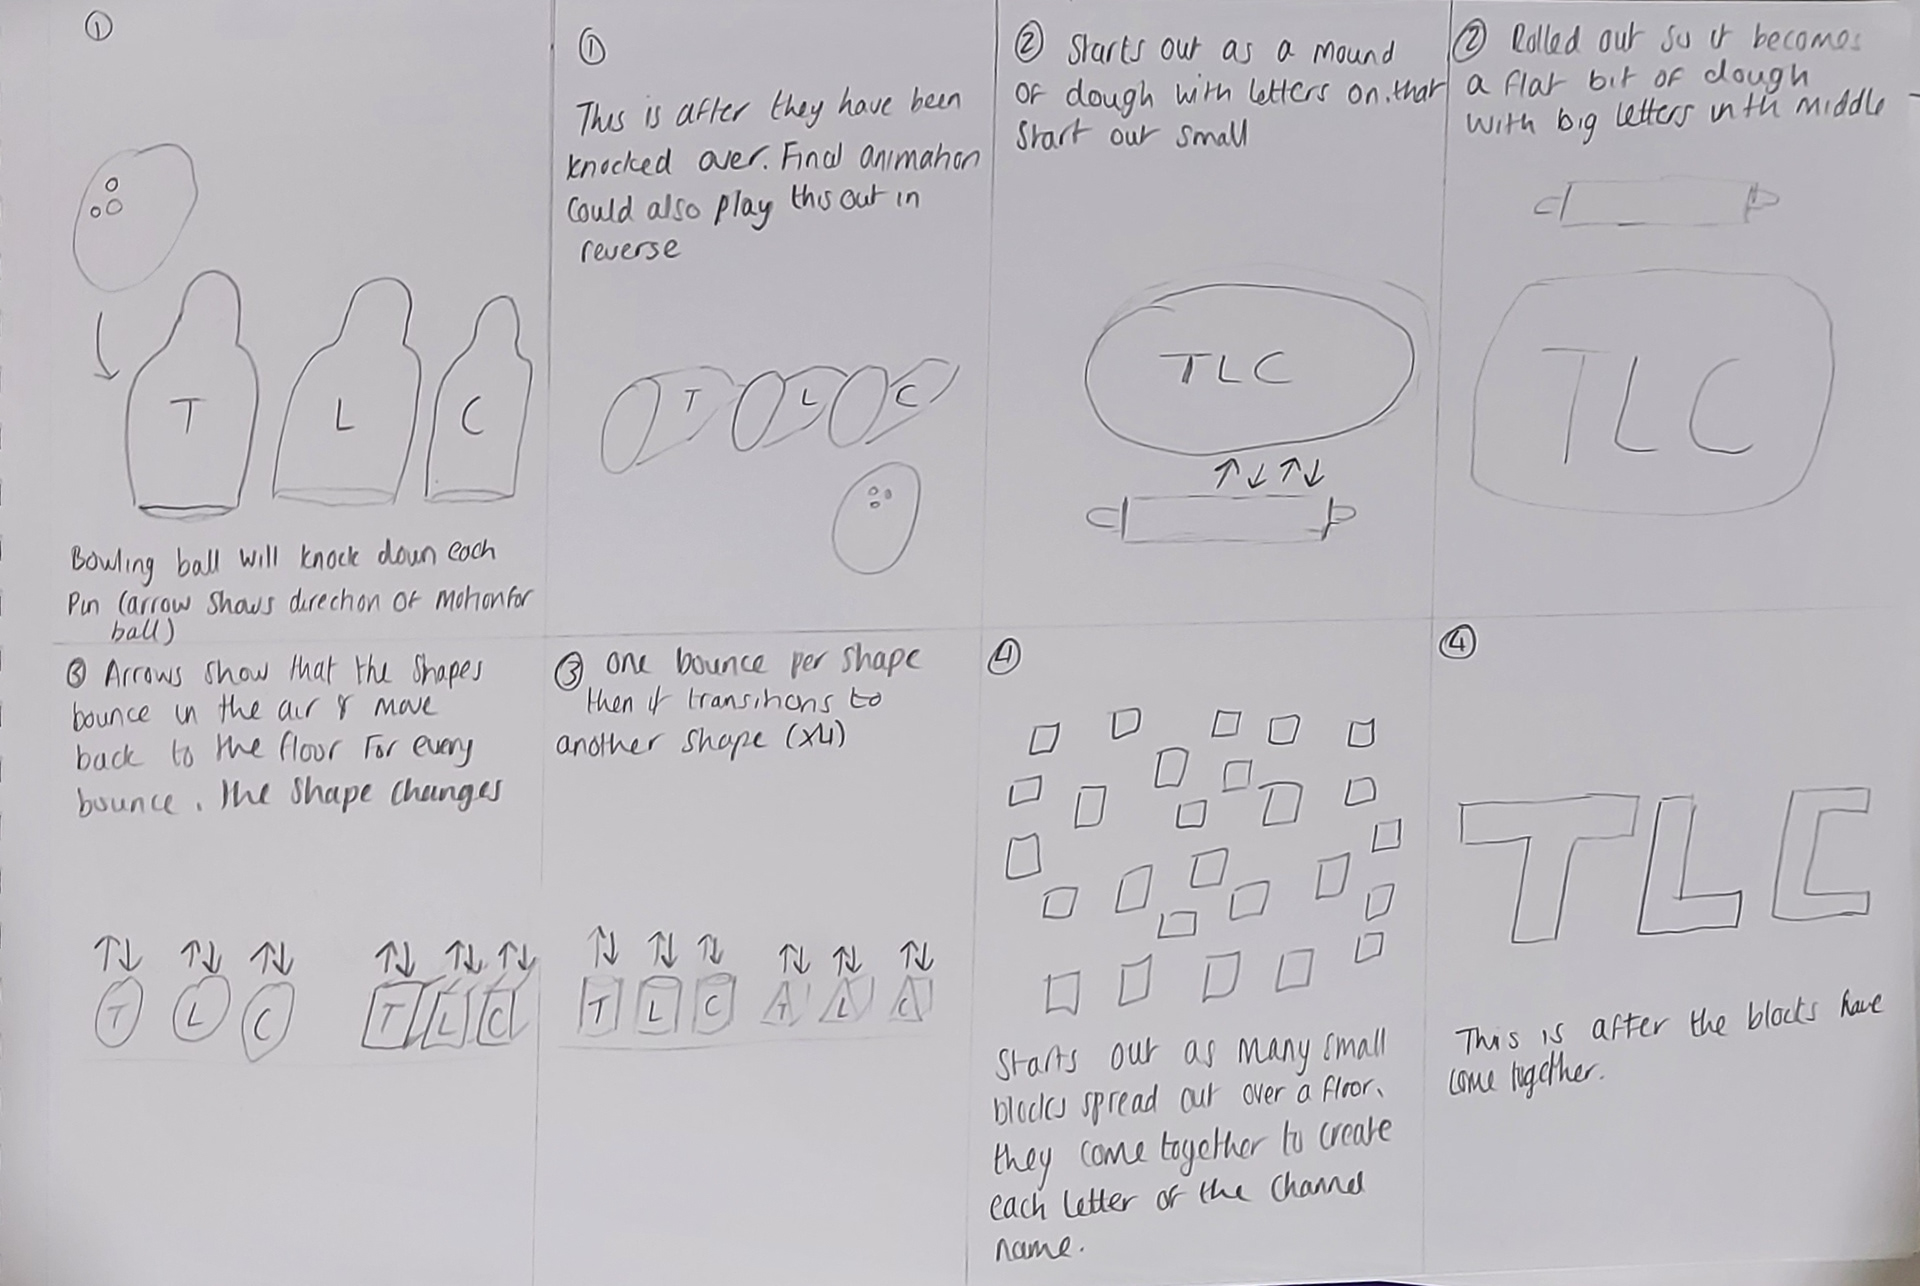 ①
T L C
Bowling ball will knock down each
Pin (arrow shows direction of motion for
ball)
①
This is after they have been
knocked over. Final animation
Could also play this out in
reverse
T L C
② Starts out as a mound
of dough with letters on. that
Start out small
TLC
② Rolled out so it becomes
a flat bit of dough
with big letters in th middle
TLC
③ Arrows show that the shapes
bounce in the air & move
back to the floor for every
bounce. The shape changes
T L C T L C
③ one bounce per shape
then it transitions to
another shape (x4)
T L C T L C
④
Starts out as many small
blocks spread out over a floor,
they come together to create
each letter of the channel
name.
④
TLC
This is after the blocks have
come together.